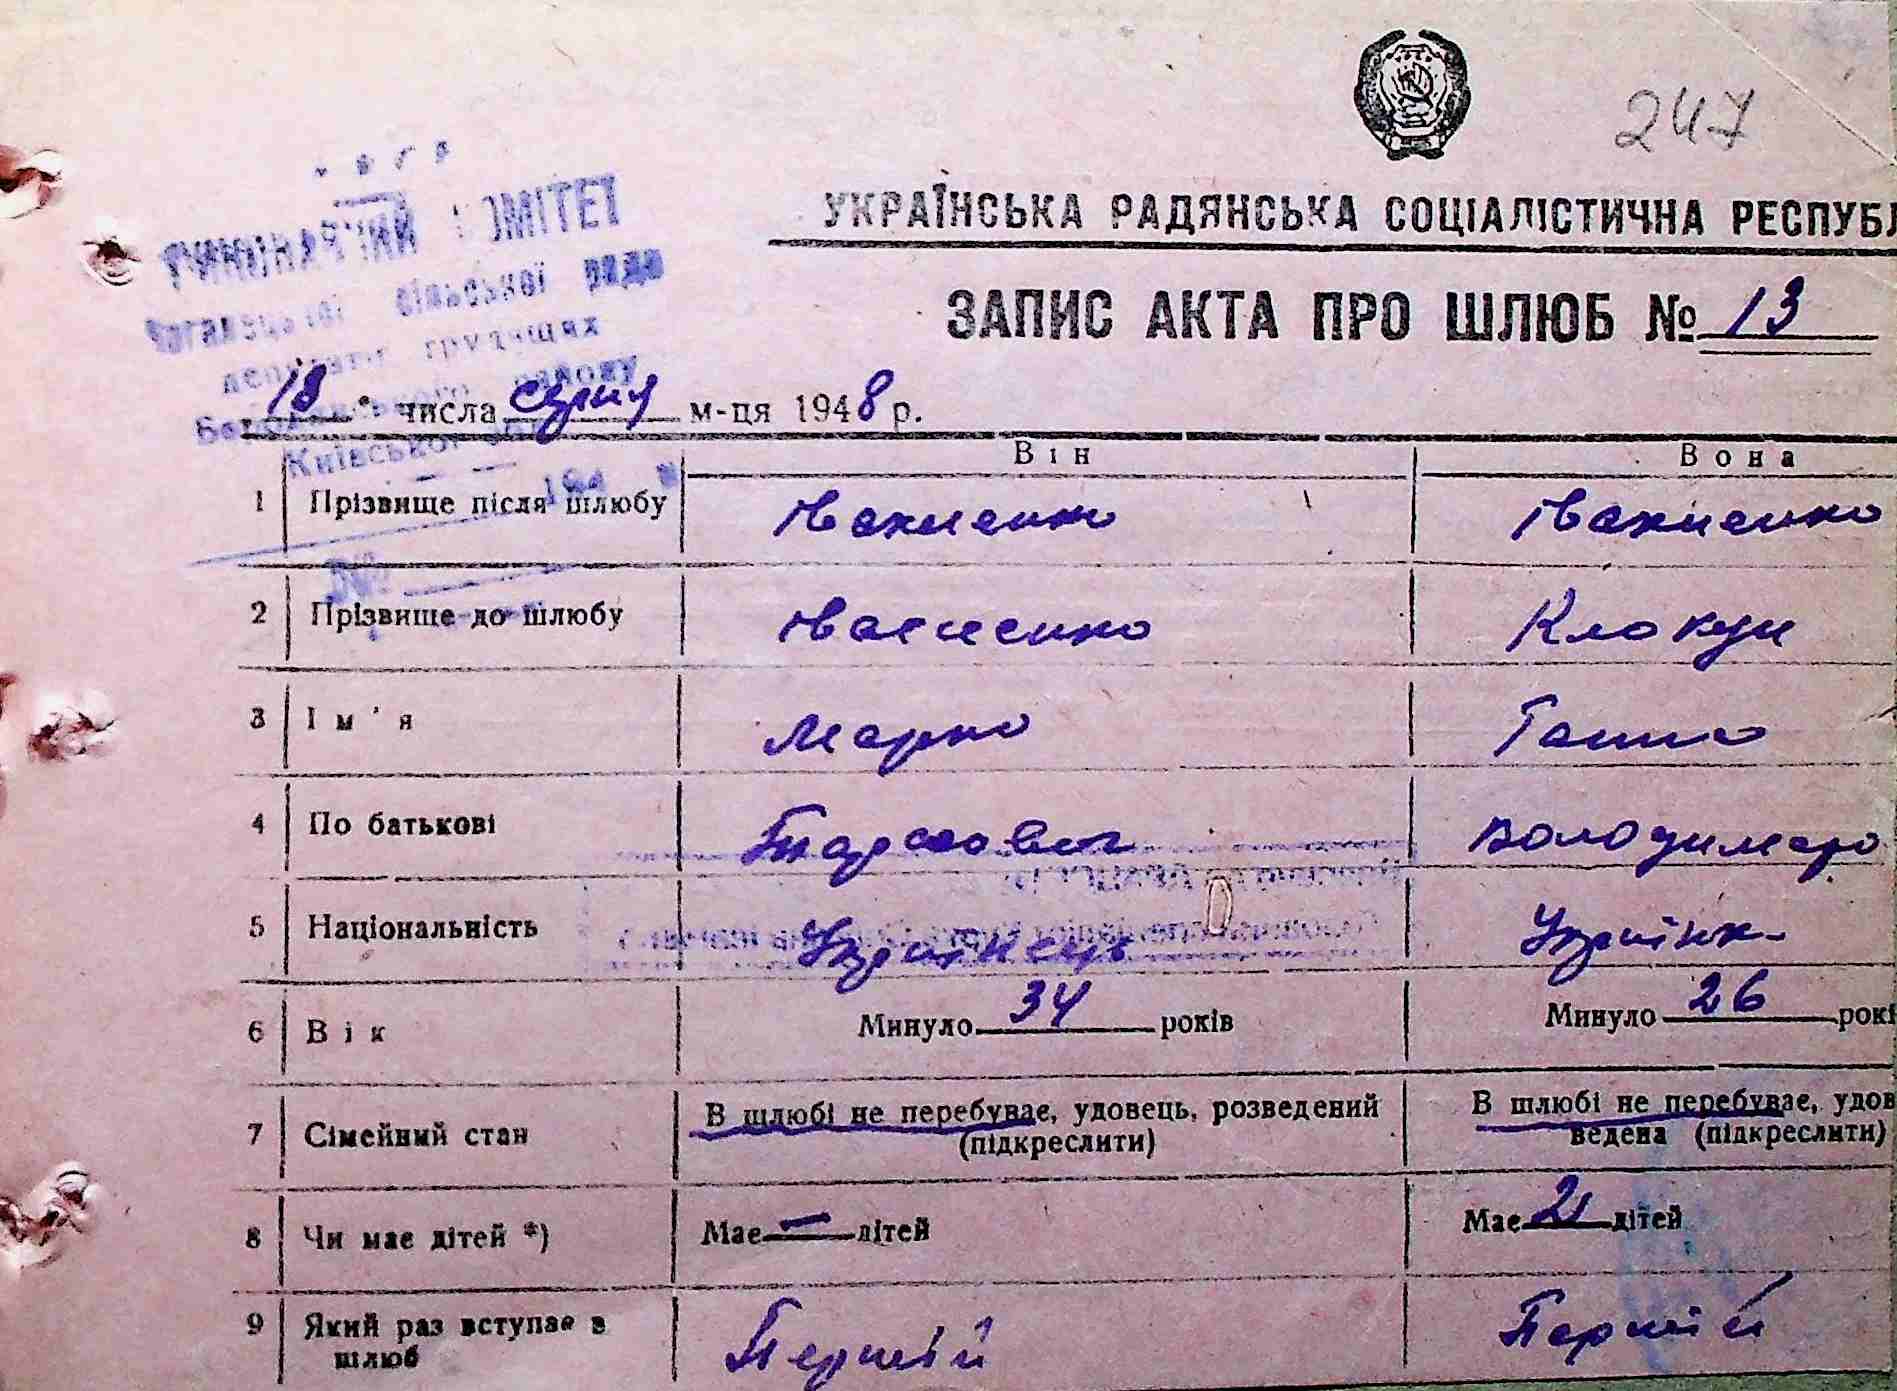 247
УКРАЇНСЬКА РАДЯНСЬКА СОЦІАЛІСТИЧНА РЕСПУБЛ
КОМІТЕТ
сільської ради
трудящих
району
Київської
ЗАПИС АКТА ПРО ШЛЮБ № 13
18 " числа серпня м-ця 1948 р.
Він Вона
1 Прізвище після шлюбу
2 Прізвище до шлюбу Клокун
3 Ім'я Марко Ганна
4 По батькові Тарасович Володимиро
5 Національність Українець Українк
6 Вік Минуло 34 років Минуло 26 рокі
7 Сімейний стан В шлюбі не перебуває, удовець, розведений (підкреслити) В шлюбі не перебуває, удов ведена (підкреслити)
8 Чи має дітей *) Має — дітей Має 2 дітей
9 Який раз вступає в шлюб Перший Перший